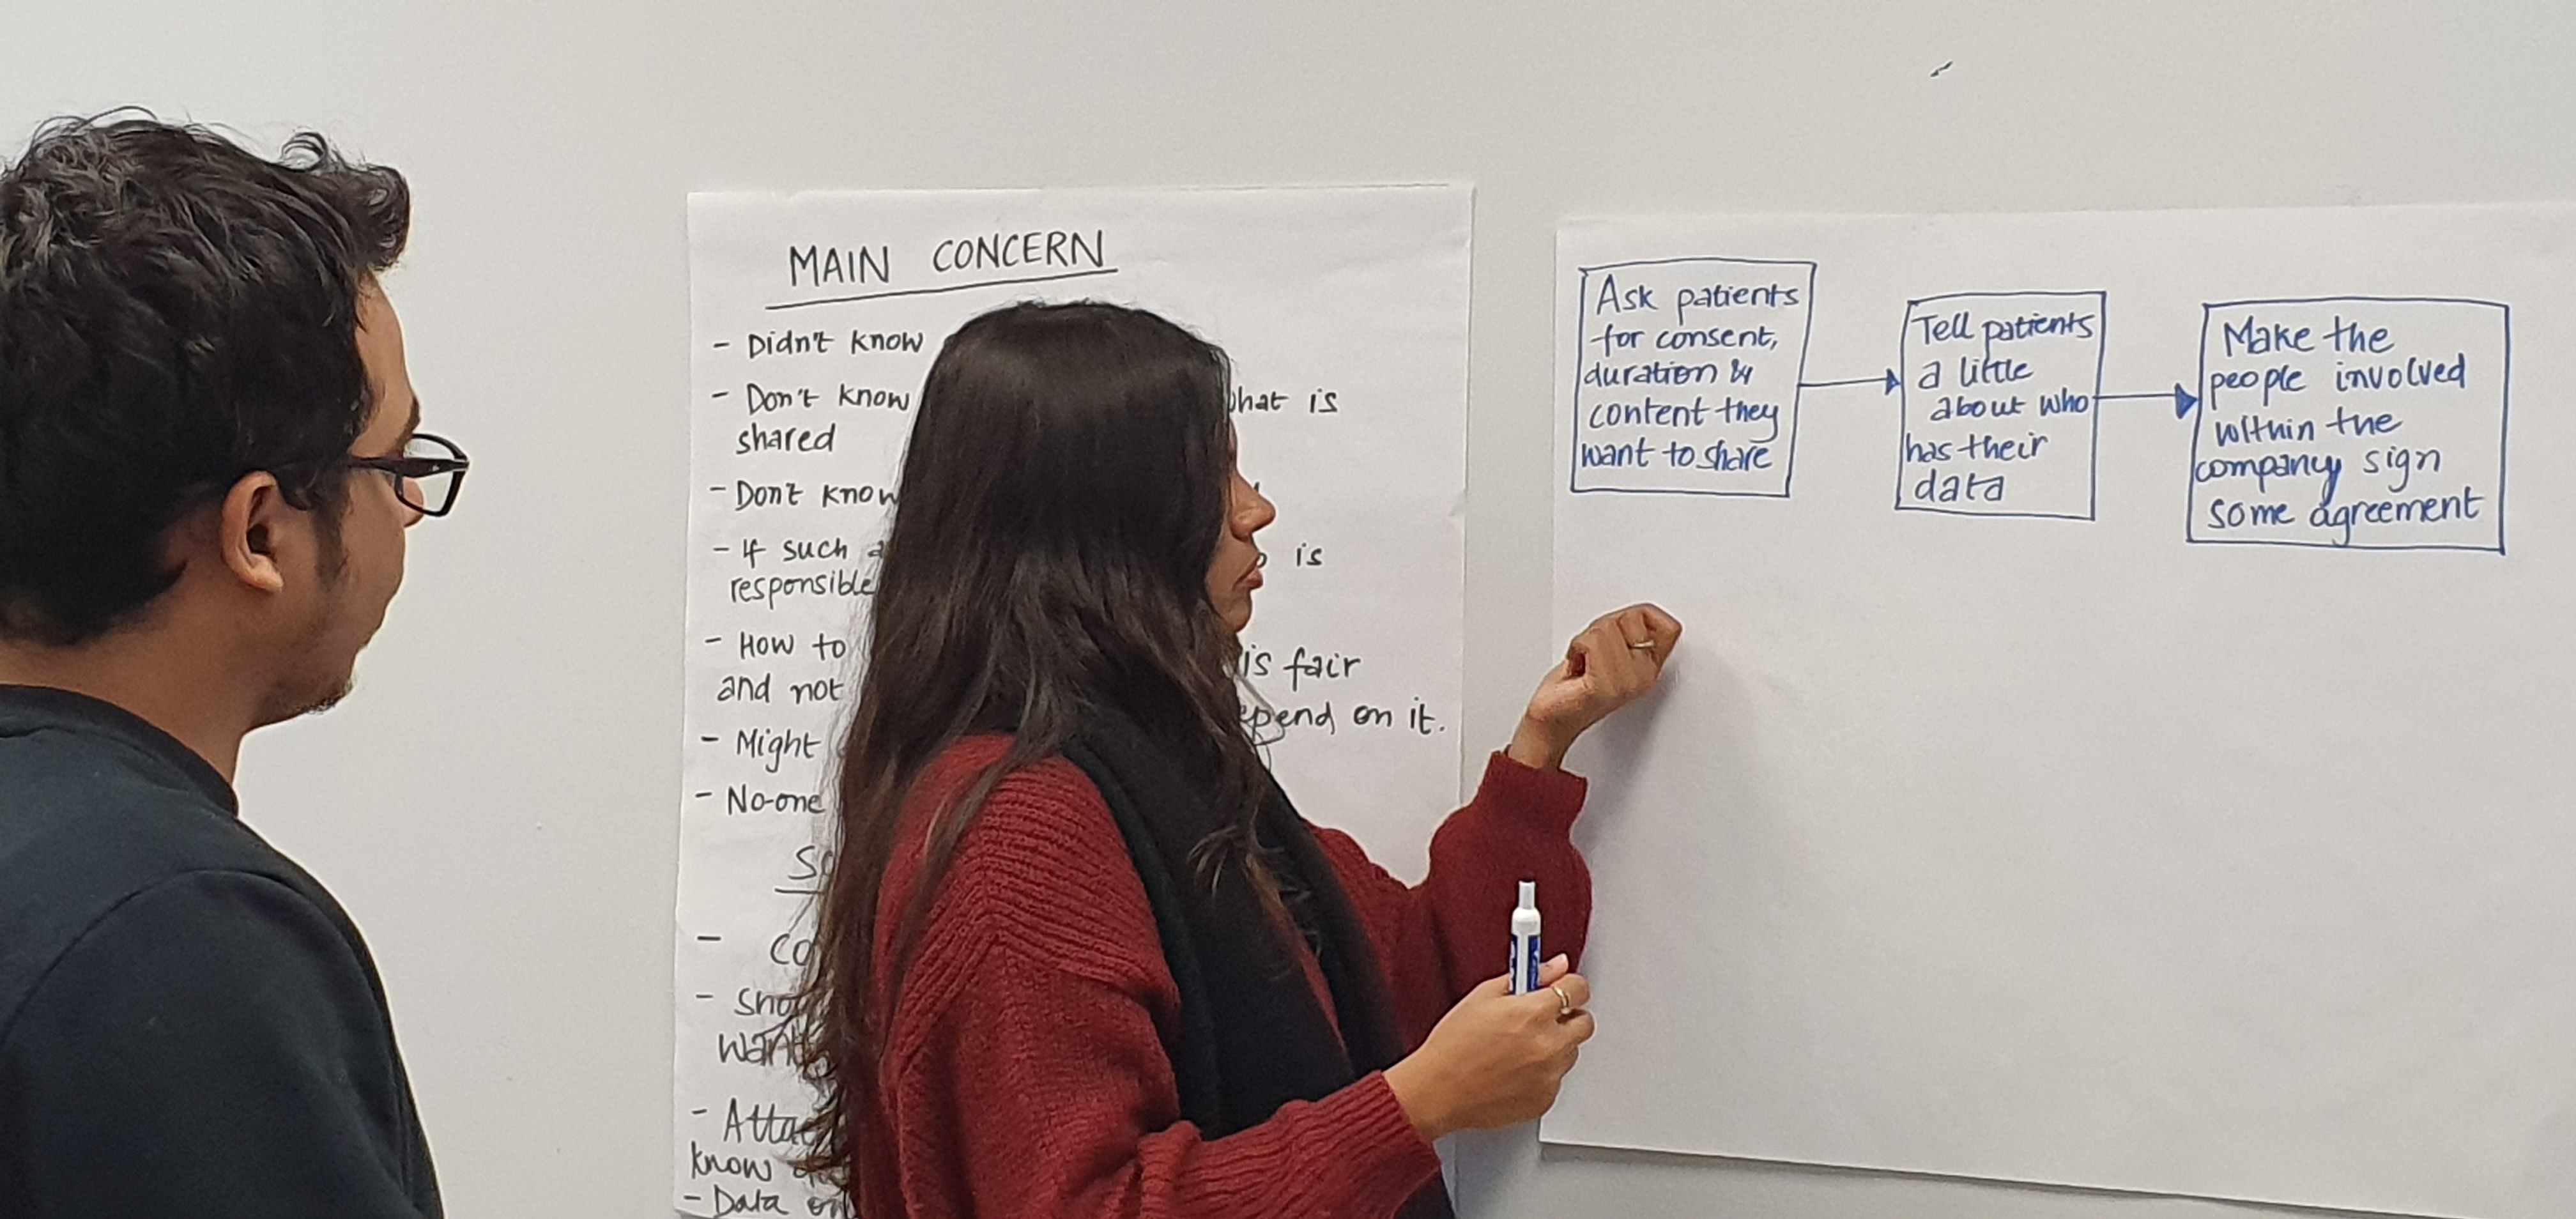 MAIN CONCERN
- Didn't know
- Don't know what is
shared
- Don't know
- If such is
responsible
- How to is fair
and not depend on it.
- Might
- No-one
-
-
want
-
know
- Data
Ask patients
for consent,
duration &
content they
want to share
Tell patients
a little
about who
has their
data
Make the
people involved
within the
company sign
some agreement